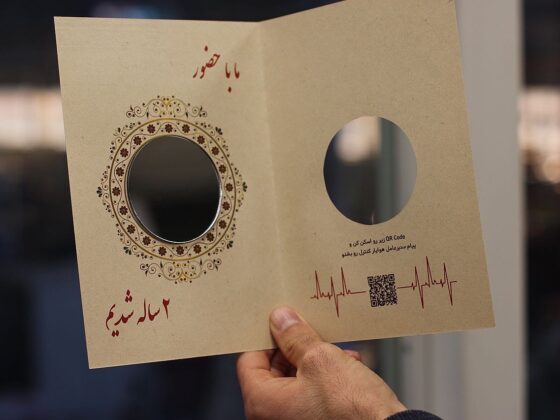 ما با حضور
۲ ساله شدیم
QR Code زیر رو اسکن کن و
پیام مدیرعامل هوایار کنترل رو بشنو